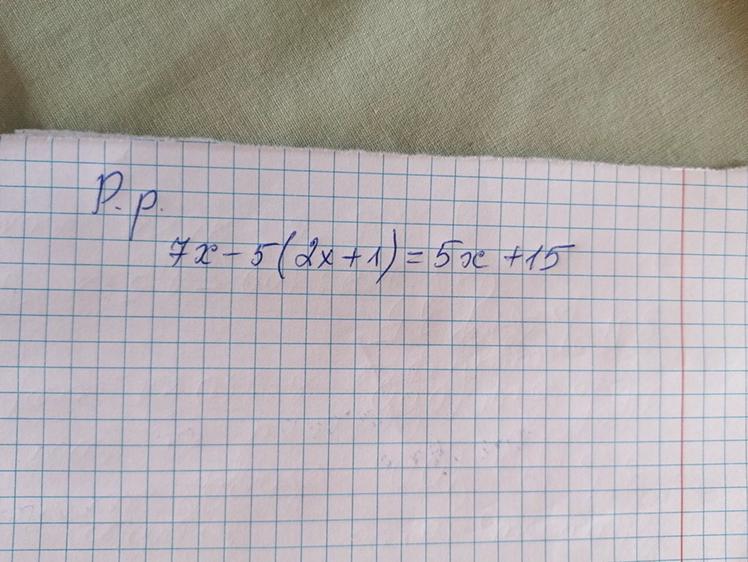 Р.р.
7x - 5(2x+1) = 5x + 15